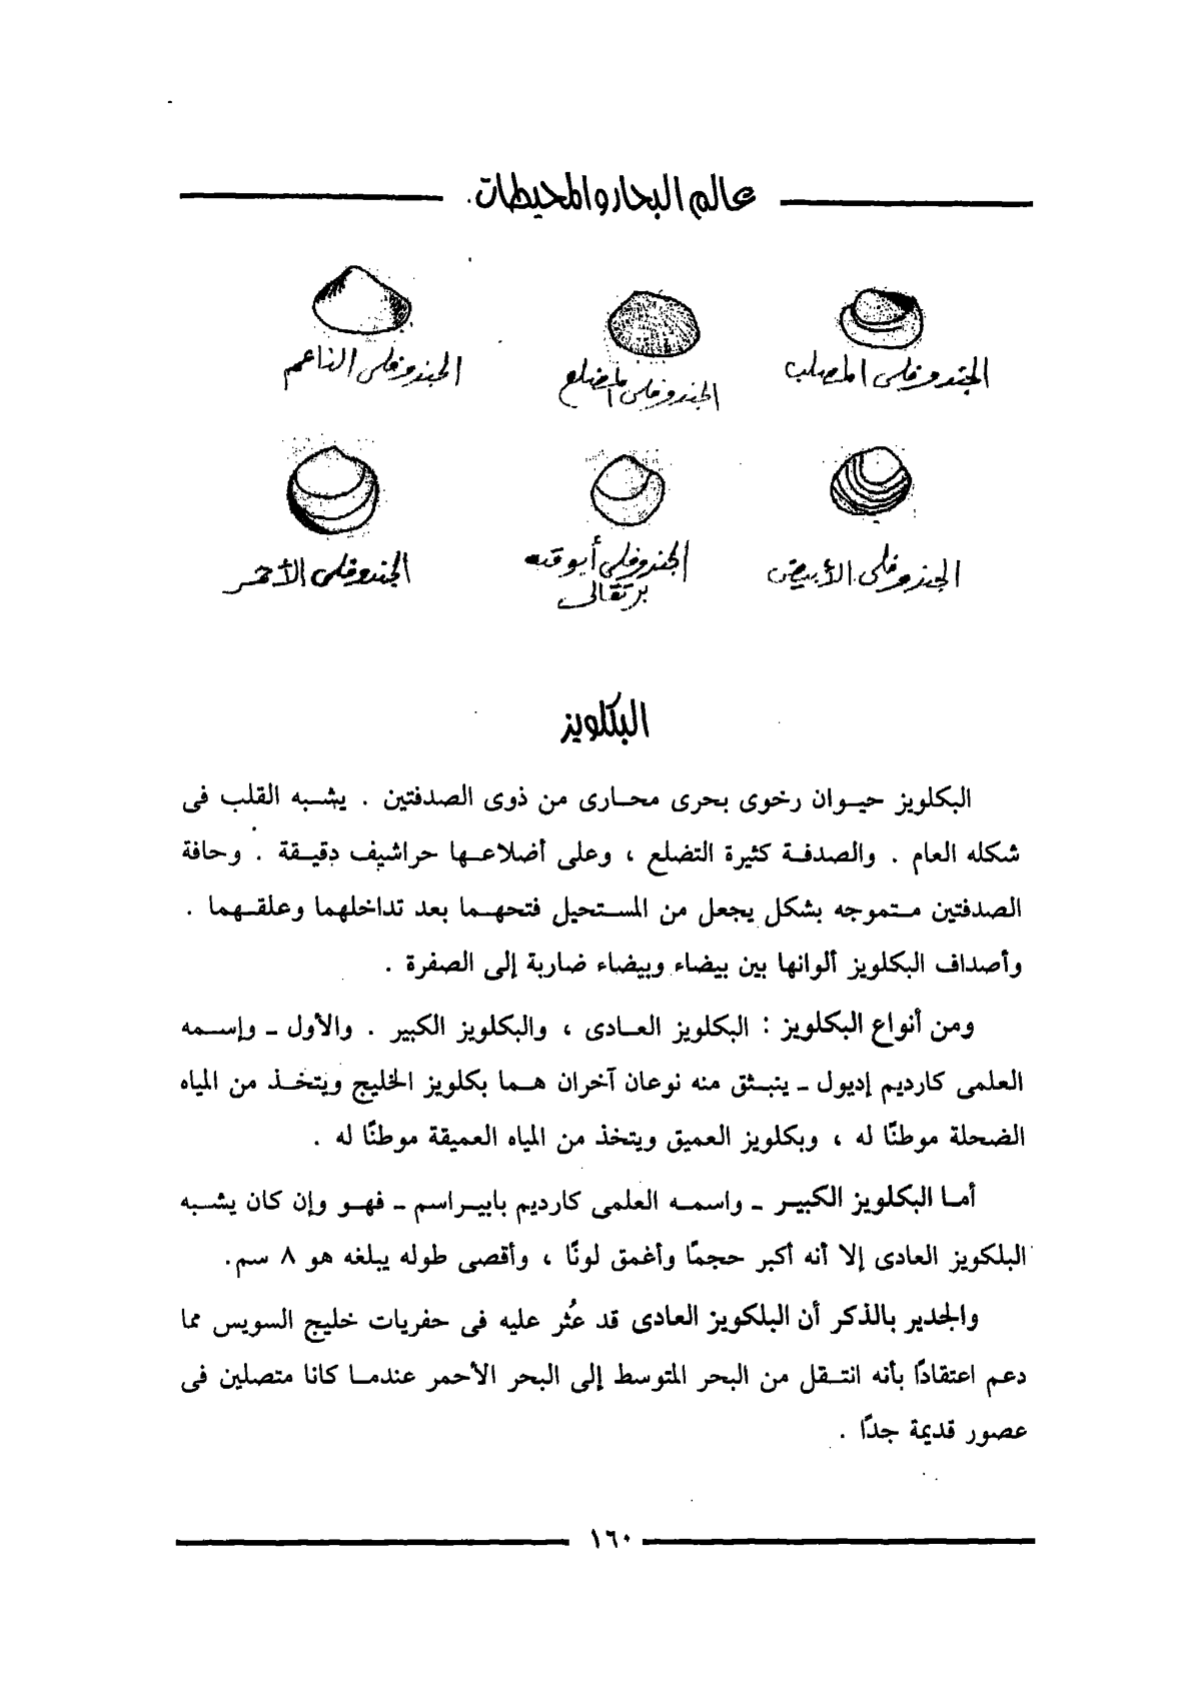 عالم البحار والمحيطات
الجندوفلى المصلب
الجندوفلى المضلع
الجندوفلى الناعم
الجندوفلى الأبيض
الجندوفلى أبو قنه
برتقالى
الجندوفلى الأحمر
البكلويز
البكلويز حيوان رخوى بحرى محارى من ذوى الصدفتين . يشبه القلب فى
شكله العام . والصدفة كثيرة التضلع ، وعلى أضلاعها حراشيف دقيقة . وحافة
الصدفتين متموجه بشكل يجعل من المستحيل فتحهما بعد تداخلهما وعلقهما .
وأصداف البكلويز ألوانها بين بيضاء وبيضاء ضاربة إلى الصفرة .
ومن أنواع البكلويز : البكلويز العادى ، والبكلويز الكبير . والأول ـ وإسمه
العلمى كارديم إديول ـ ينبثق منه نوعان آخران هما بكلويز الخليج ويتخذ من المياه
الضحلة موطنًا له ، وبكلويز العميق ويتخذ من المياه العميقة موطنًا له .
أما البكلويز الكبير ـ واسمه العلمى كارديم بابيراسم ـ فهو وإن كان يشبه
البلكويز العادى إلا أنه أكبر حجمًا وأغمق لونًا ، وأقصى طوله يبلغه هو ٨ سم.
والجدير بالذكر أن البلكويز العادى قد عُثر عليه فى حفريات خليج السويس مما
دعم اعتقادًا بأنه انتقل من البحر المتوسط إلى البحر الأحمر عندما كانا متصلين فى
عصور قديمة جدًا .
١٦٠